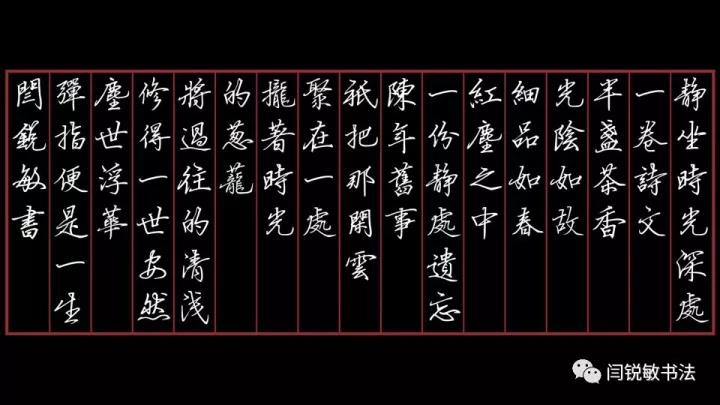 靜坐時光深處
一卷詩文
半盞茶香
光陰如故
細品如春
紅塵之中
一份靜處遺忘
陳年舊事
祇把那閑雲
聚在一處
攏著時光
的蔥蘢
將過往的清淺
修得一世安然
塵世浮華
彈指便是一生
閆銳敏書
闫锐敏书法